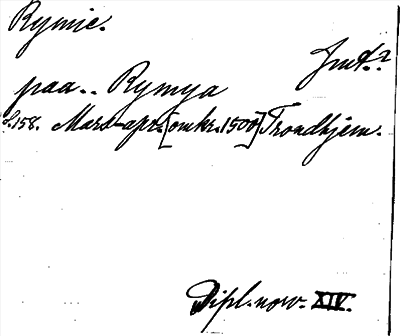 Rymie.
Jmt.?
paa.. Rymya
s.158. Mars-apr. [omkr. 1500] Trondhjem.
Dipl. norv. XIV.